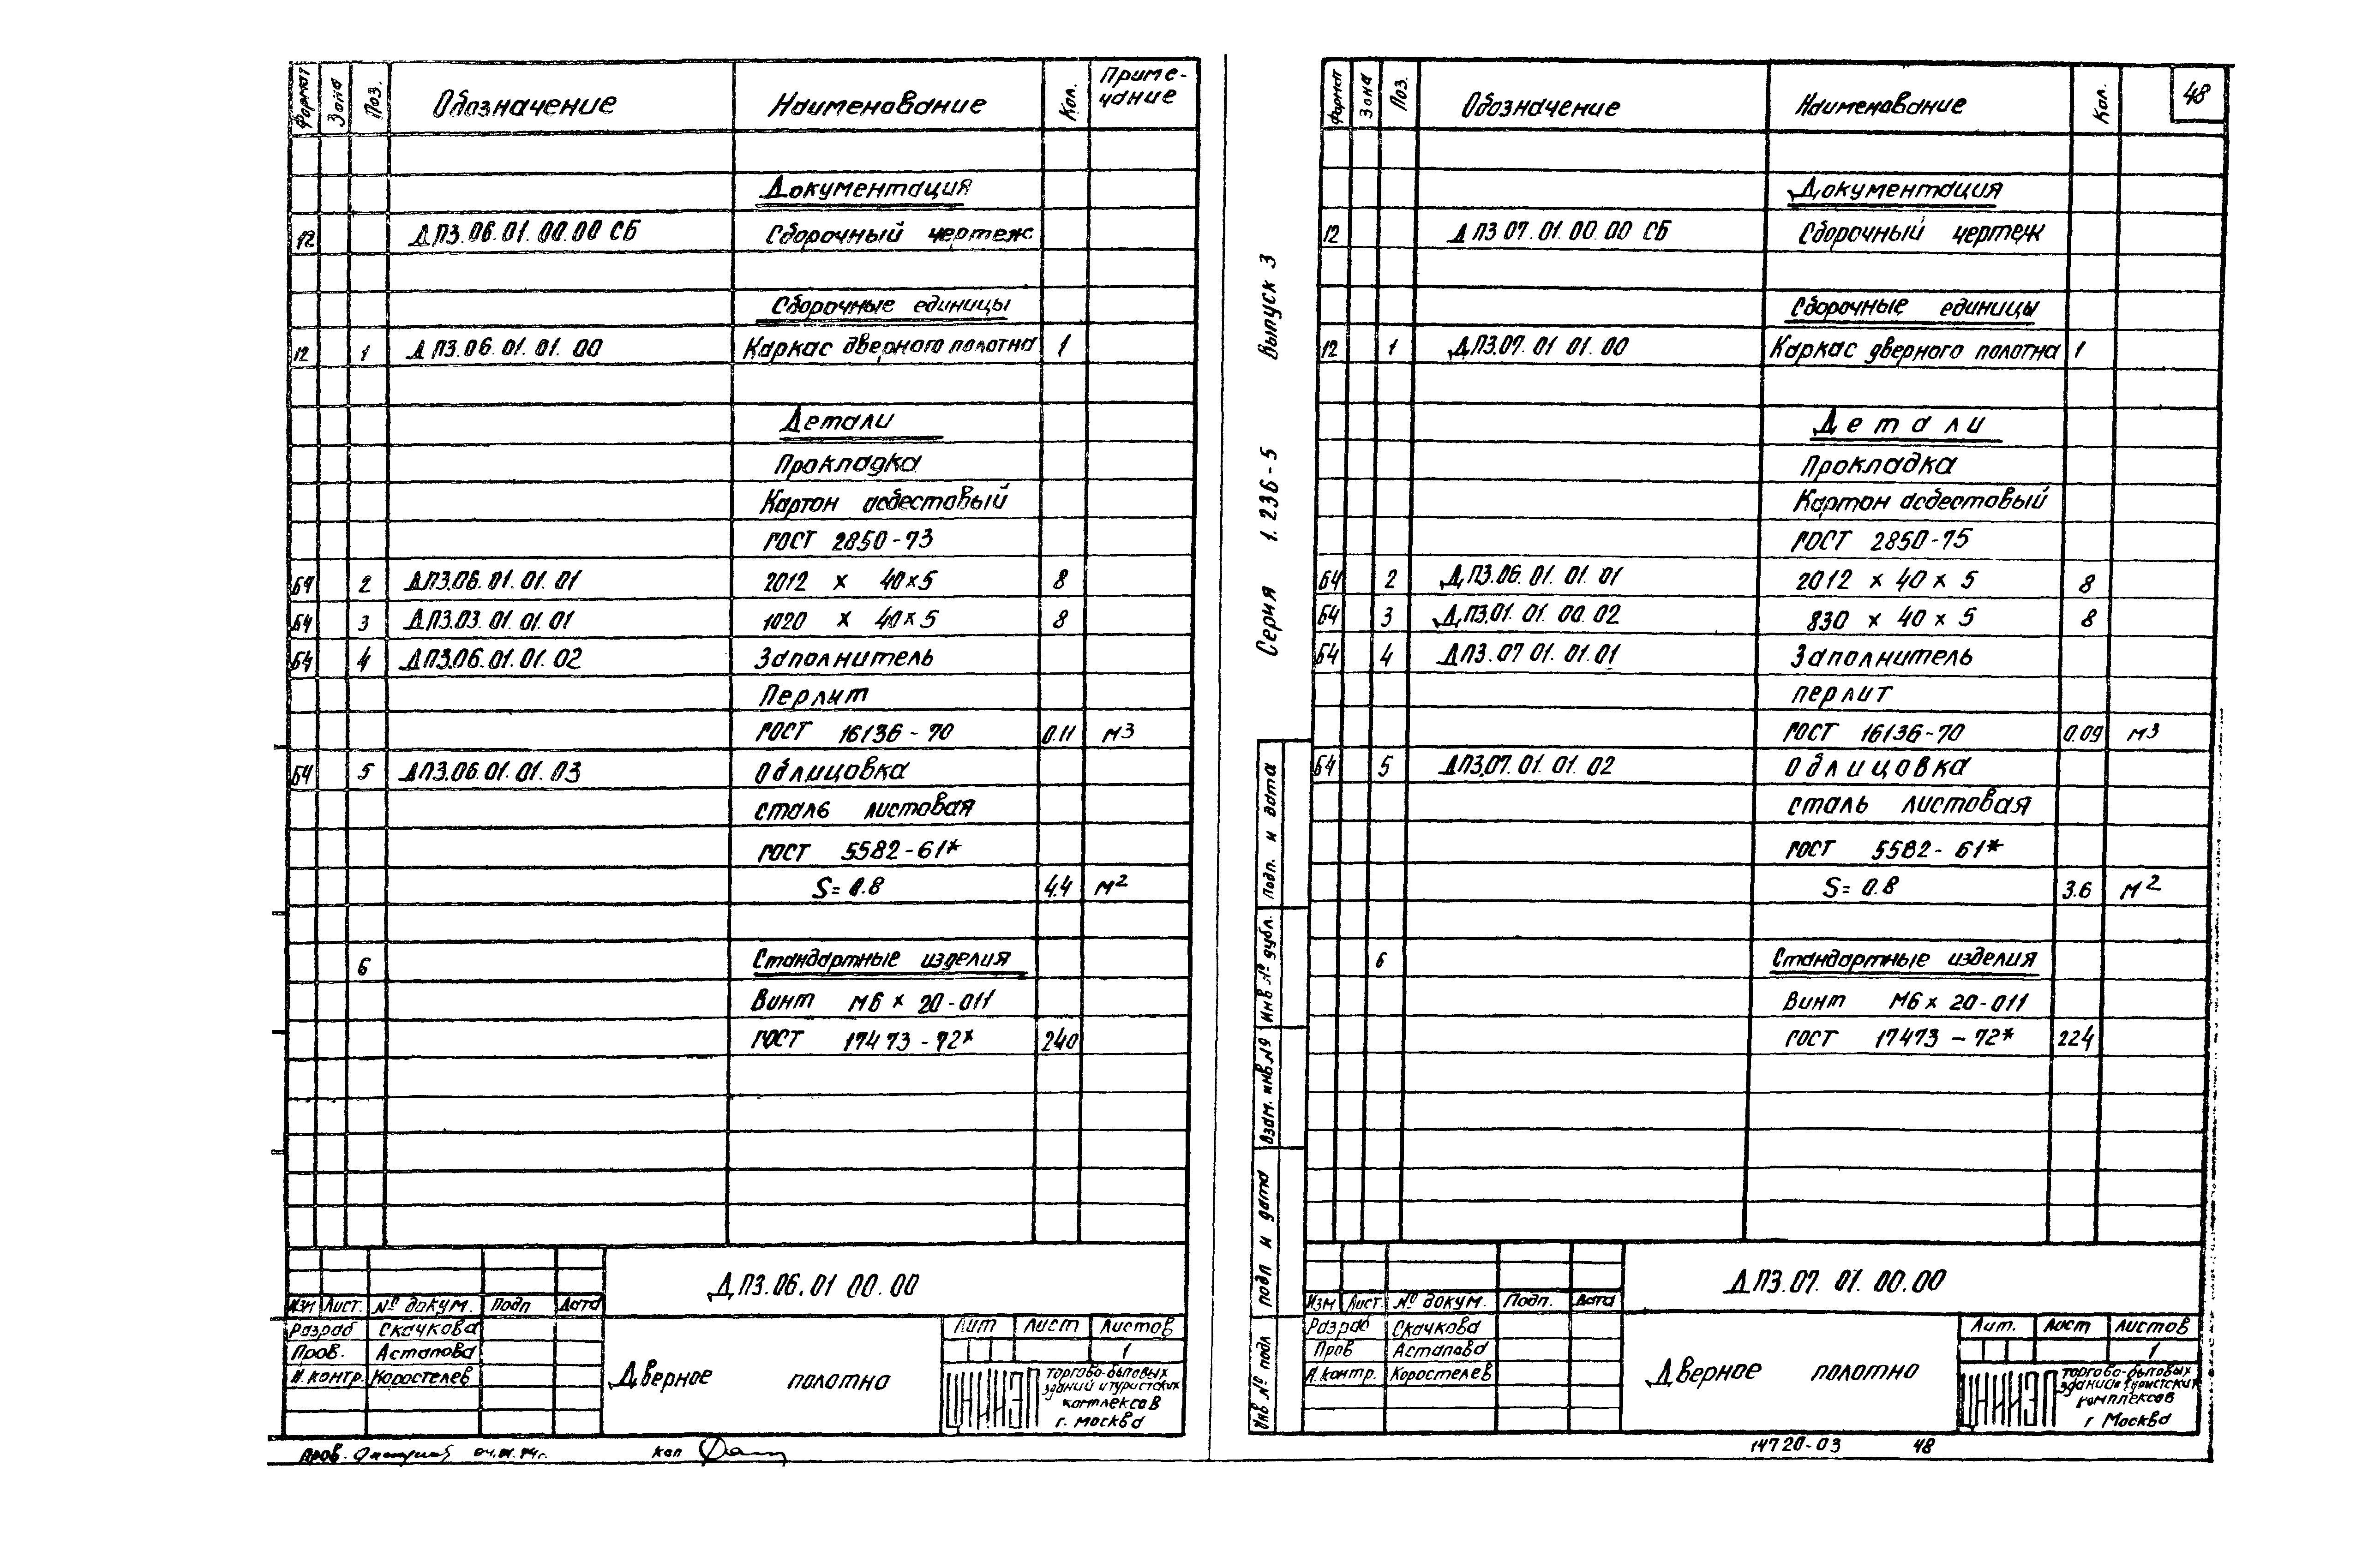 Формат Зона Поз. Обозначение Наименование Кол. Приме-
чание
Документация
12 ДПЗ.06.01.00.00 СБ Сборочный чертеж
Сборочные единицы
12 1 ДПЗ.06.01.01.00 Каркас дверного полотна 1
Детали
Прокладка
Картон асбестовый
ГОСТ 2850-73
БЧ 2 ДПЗ.06.01.01.01 2012 х 40х5 8
БЧ 3 ДПЗ.03.01.01.01 1020 х 40х5 8
БЧ 4 ДПЗ.06.01.01.02 Заполнитель
Перлит
ГОСТ 16136-70 0.11 м3
БЧ 5 ДПЗ.06.01.01.03 Облицовка
сталь листовая
ГОСТ 5582-61*
S=0.8 4.4 м2
6 Стандартные изделия
Винт М6 х 20-011
ГОСТ 17473-72* 240
ДПЗ.06.01 00.00
Изм Лист. № докум. Подп Дата
Разраб Скачкова
Пров. Астапова
Н.контр. Коростелев
Дверное полотно
Лит Лист Листов
1
ЦНИИЭП
торгово-бытовых
зданий и туристских
комплексов
г. Москва
Пров. 04.01.74г. Коп
Серия 1.236-5 Выпуск 3
Подп. и дата
Инв № дубл.
Взам. инв.№
Подп и дата
Инв № подл
Формат Зона Поз. Обозначение Наименование Кол. 48
Документация
12 ДПЗ 07.01.00.00 СБ Сборочный чертеж
Сборочные единицы
12 1 ДПЗ.07.01 01.00 Каркас дверного полотна 1
Детали
Прокладка
Картон асбестовый
ГОСТ 2850-75
БЧ 2 ДПЗ.06.01.01.01 2012 х 40 х 5 8
БЧ 3 ДПЗ.01.01.00.02 830 х 40 х 5 8
БЧ 4 ДПЗ.07 01.01.01 Заполнитель
перлит
ГОСТ 16136-70 0.09 м3
БЧ 5 ДПЗ.07.01.01.02 Облицовка
сталь листовая
ГОСТ 5582-61*
S=0.8 3.6 м2
6 Стандартные изделия
Винт М6х 20-011
ГОСТ 17473-72* 224
ДПЗ.07.01.00.00
Изм Лист. № докум. Подп. Дата
Разраб Скачкова
Пров Астапова
Н.контр. Коростелев
Дверное полотно
Лит. Лист Листов
1
ЦНИИЭП
торгово-бытовых
зданий и туристских
комплексов
г Москва
14720-03 48